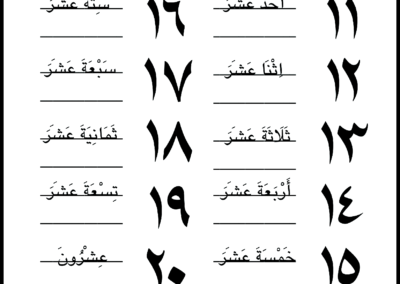 ١١ أَحَدَ عَشَرَ
١٢ اِثْنَا عَشَرَ
١٣ ثَلَاثَةَ عَشَرَ
١٤ أَرْبَعَةَ عَشَرَ
١٥ خَمْسَةَ عَشَرَ
١٦ سِتَّةَ عَشَرَ
١٧ سَبْعَةَ عَشَرَ
١٨ ثَمَانِيَةَ عَشَرَ
١٩ تِسْعَةَ عَشَرَ
٢٠ عِشْرُونَ